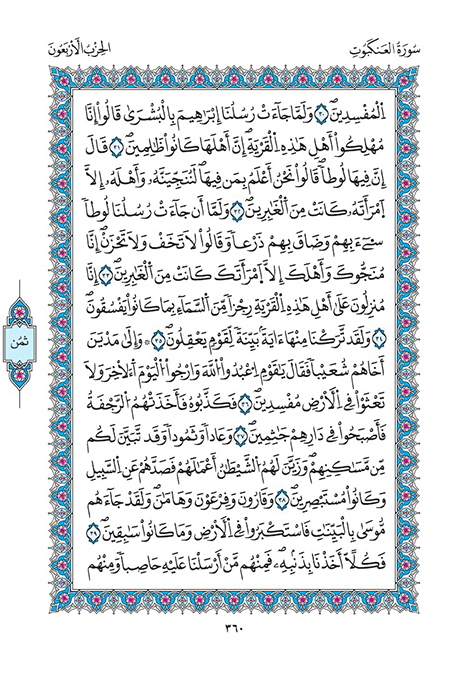 سُورَةُ العَنكَبُوتِ
الحِزْبُ الَارْبَعُونَ
اَ۬لْمُفْسِدِينَۖ ٣٠ وَلَمَّا جَآءَتْ رُسُلُنَآ إِبْرَٰهِيمَ بِالْبُشْر۪يٰ قَالُوٓاْ إِنَّا
مُهْلِكُوٓاْ أَهْلِ هَٰذِهِ اِ۬لْقَرْيَةِۖ إِنَّ أَهْلَهَا كَانُواْ ظَٰلِمِينَۖ ٣١ قَالَ
إِنَّ فِيهَا لُوطاٗۖ قَالُواْ نَحْنُ أَعْلَمُ بِمَن فِيهَا لَنُنَجِّيَنَّهُۥ وَأَهْلَهُۥٓ إِلَّا
اَ۪مْرَأَتَهُۥ كَانَتْ مِنَ اَ۬لْغَٰبِرِينَۖ ٣٢ وَلَمَّآ أَن جَآءَتْ رُسُلُنَا لُوطاٗ
سِےٓءَ بِهِمْ وَضَاقَ بِهِمْ ذَرْعاٗ وَقَالُواْ لَا تَخَفْ وَلَا تَحْزَنِۖ اِنَّا
مُنَجُّوكَ وَأَهْلَكَ إِلَّا اَ۪مْرَأَتَكَ كَانَتْ مِنَ اَ۬لْغَٰبِرِينَۖ ٣٣ إِنَّا
مُنزِلُونَ عَلَىٰٓ أَهْلِ هَٰذِهِ اِ۬لْقَرْيَةِ رِجْزاٗ مِّنَ اَ۬لسَّمَآءِ بِمَا كَانُواْ يَفْسُقُونَۖ
٣٤ وَلَقَد تَّرَكْنَا مِنْهَآ ءَايَةَۢ بَيِّنَةٗ لِّقَوْمٖ يَعْقِلُونَۖ ٣٥ * وَإِلَىٰ مَدْيَنَ
أَخَاهُمْ شُعَيْباٗ فَقَالَ يَٰقَوْمِ اِ۟عْبُدُواْ اُ۬للَّهَ وَارْجُواْ اُ۬لْيَوْمَ اَ۬لَاخِرَ وَلَا
تَعْثَوْاْ فِے اِ۬لَارْضِ مُفْسِدِينَۖ ٣٦ فَكَذَّبُوهُ فَأَخَذَتْهُمُ اُ۬لرَّجْفَةُ
فَأَصْبَحُواْ فِے دِارِهِمْ جَٰثِمِينَۖ ٣٧ وَعَاداٗ وَثَمُوداٗ وَقَد تَّبَيَّنَ لَكُم
مِّن مَّسَٰكِنِهِمْۖ وَزَيَّنَ لَهُمُ اُ۬لشَّيْطَٰنُ أَعْمَٰلَهُمْ فَصَدَّهُمْ عَنِ اِ۬لسَّبِيلِ
وَكَانُواْ مُسْتَبْصِرِينَۖ ٣٨ وَقَٰرُونَ وَفِرْعَوْنَ وَهَٰمَٰنَۖ وَلَقَدْ جَآءَهُم
مُّوسَىٰ بِالْبَيِّنَٰتِ فَاسْتَكْبَرُواْ فِے اِ۬لَارْضِ وَمَا كَانُواْ سَٰبِقِينَۖ ٣٩
فَكُلّاً اَخَذْنَا بِذَنۢبِهِۦۖ فَمِنْهُم مَّنَ اَرْسَلْنَا عَلَيْهِ حَاصِباٗ وَمِنْهُم
ثمُن
٣٦٠